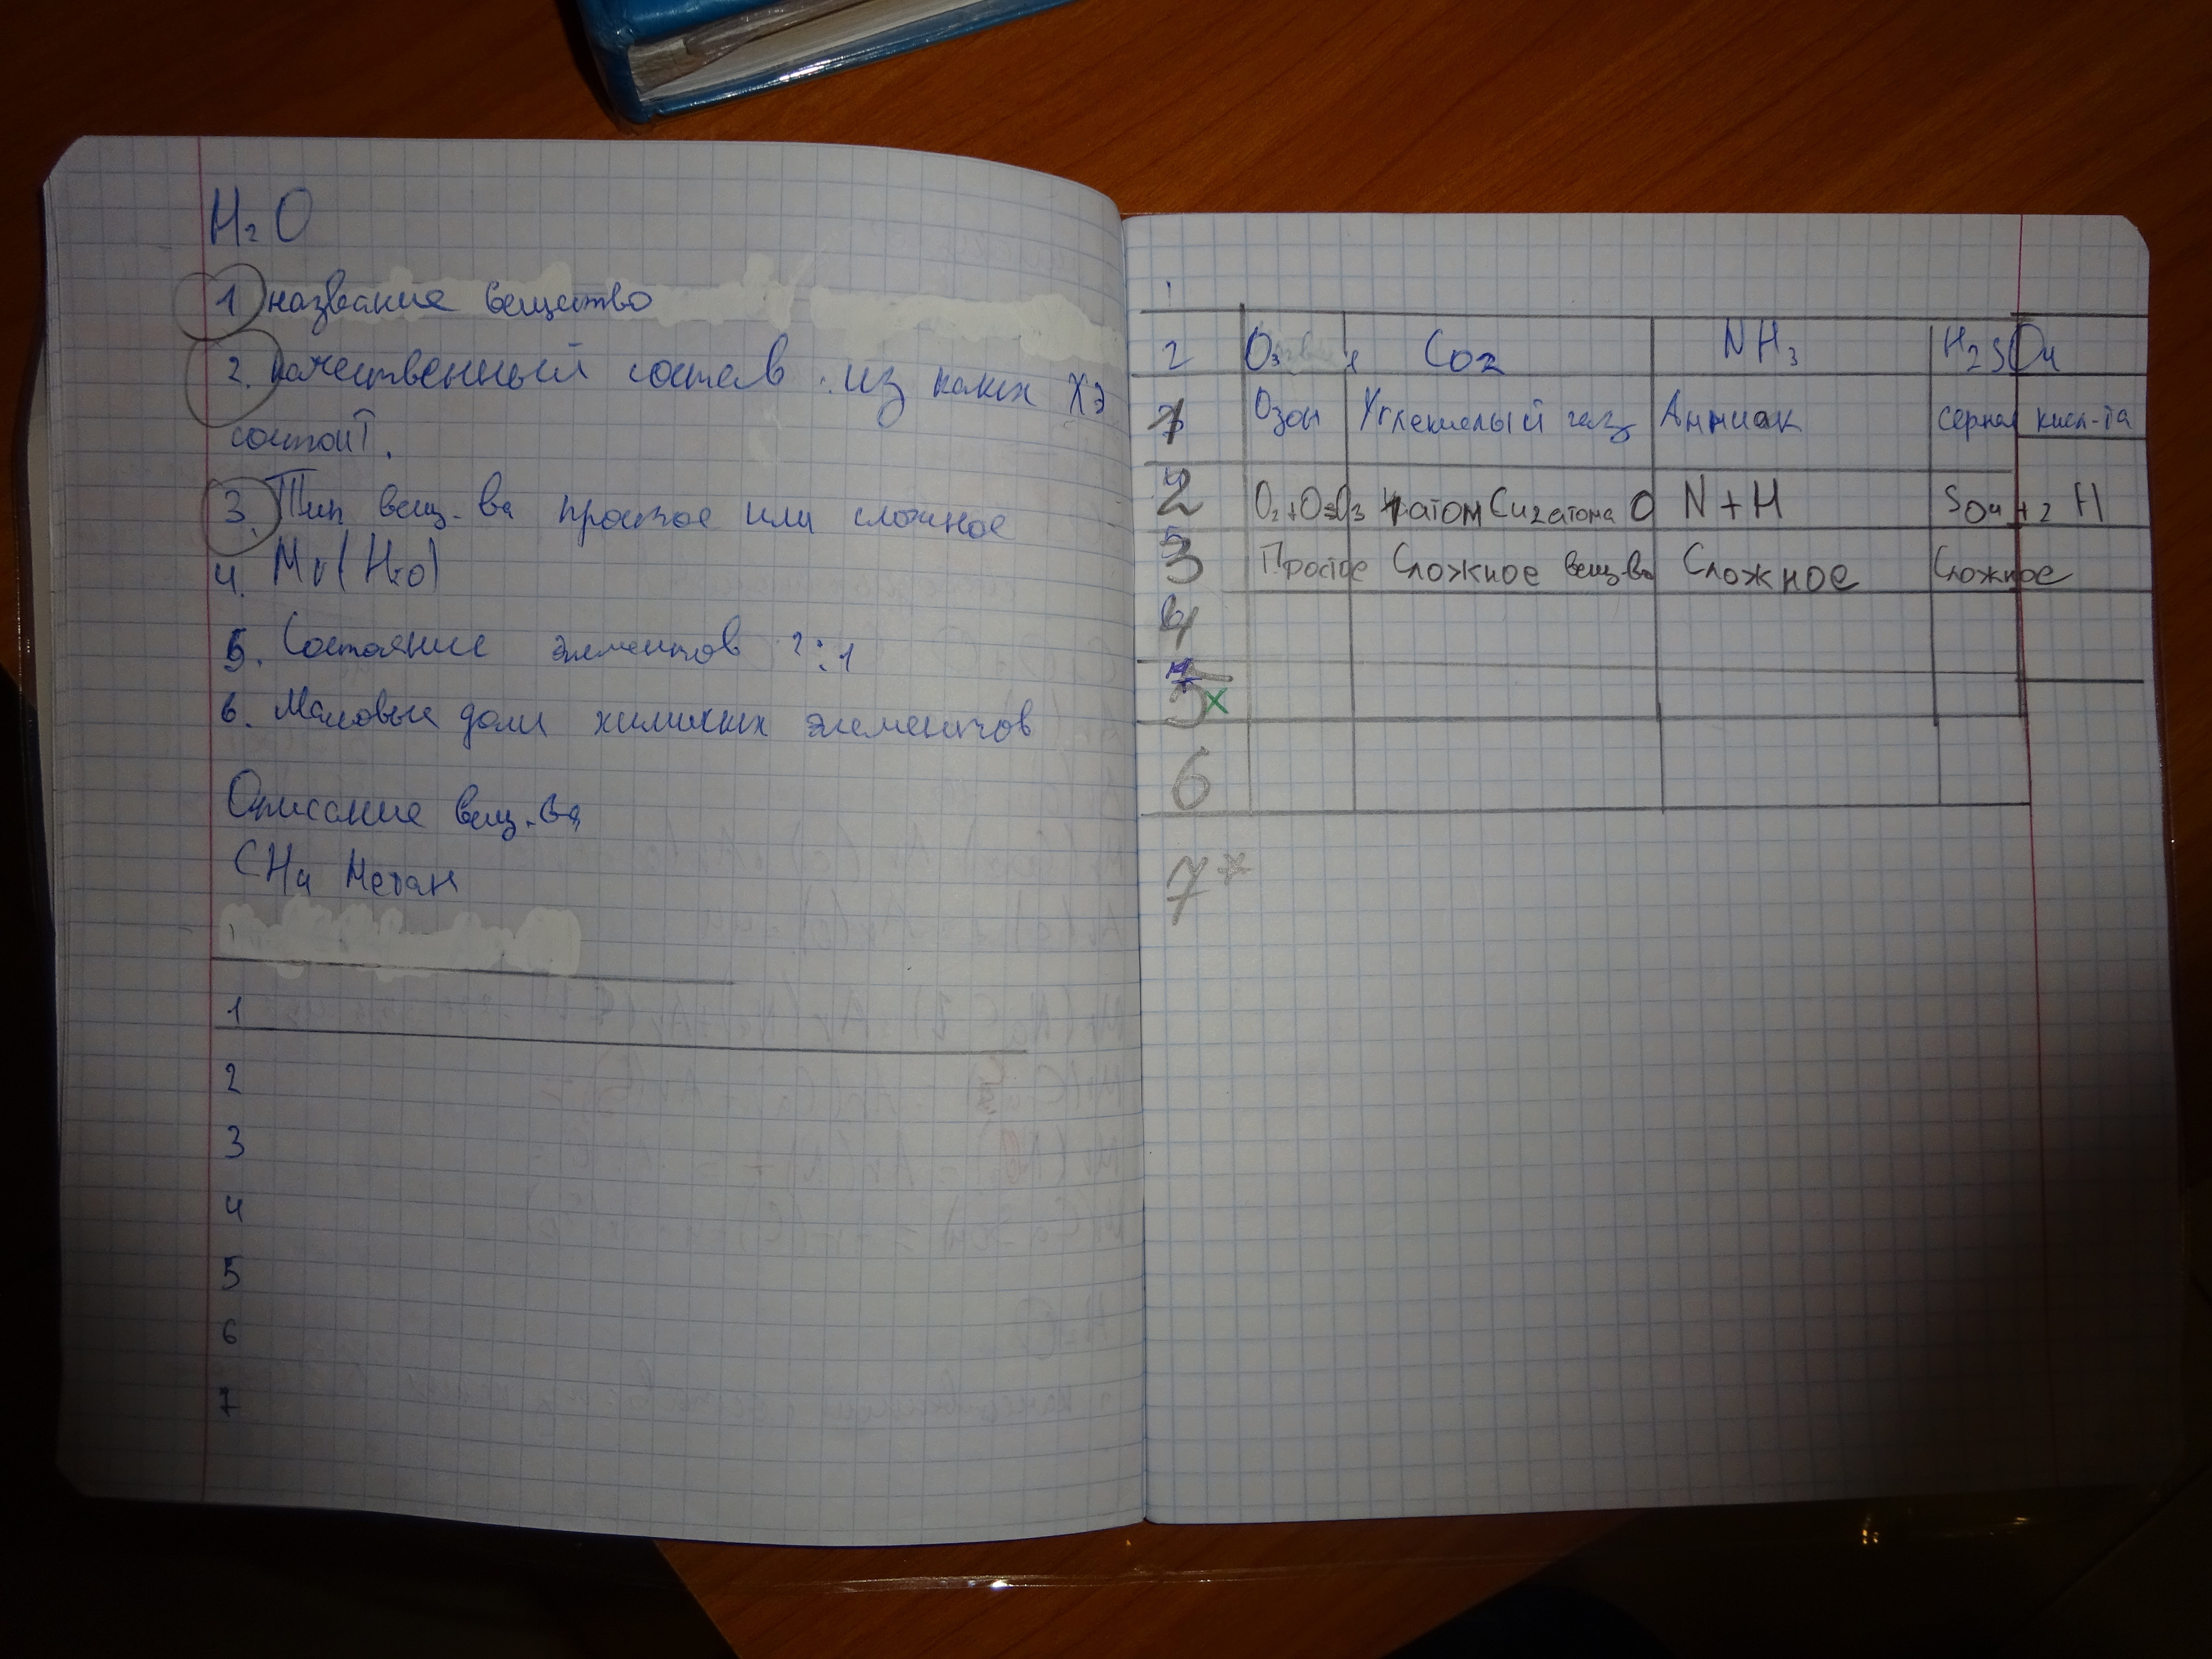 H₂O
1 название вещество
2. качественный состав : из каких ХЭ
состоит.
3. Тип вещ-ва простое или сложное
4. Mr(H₂O)
5. Состояние элементов 2:1
6. Массовые доли химиких элементов
Описание вещ-ва
CH₄ Метан
1
2
3
4
5
6
7
2 O₃ CO₂ NH₃ H₂SO₄
1 Озон Углекислый газ Аммиак серная кисл-та
2 O₂+O=O₃ 1 атом C и 2 атома O N+H SO₄+2 H
3 Простое Сложное вещ-во Сложное Сложное
4
5 x
6
7*